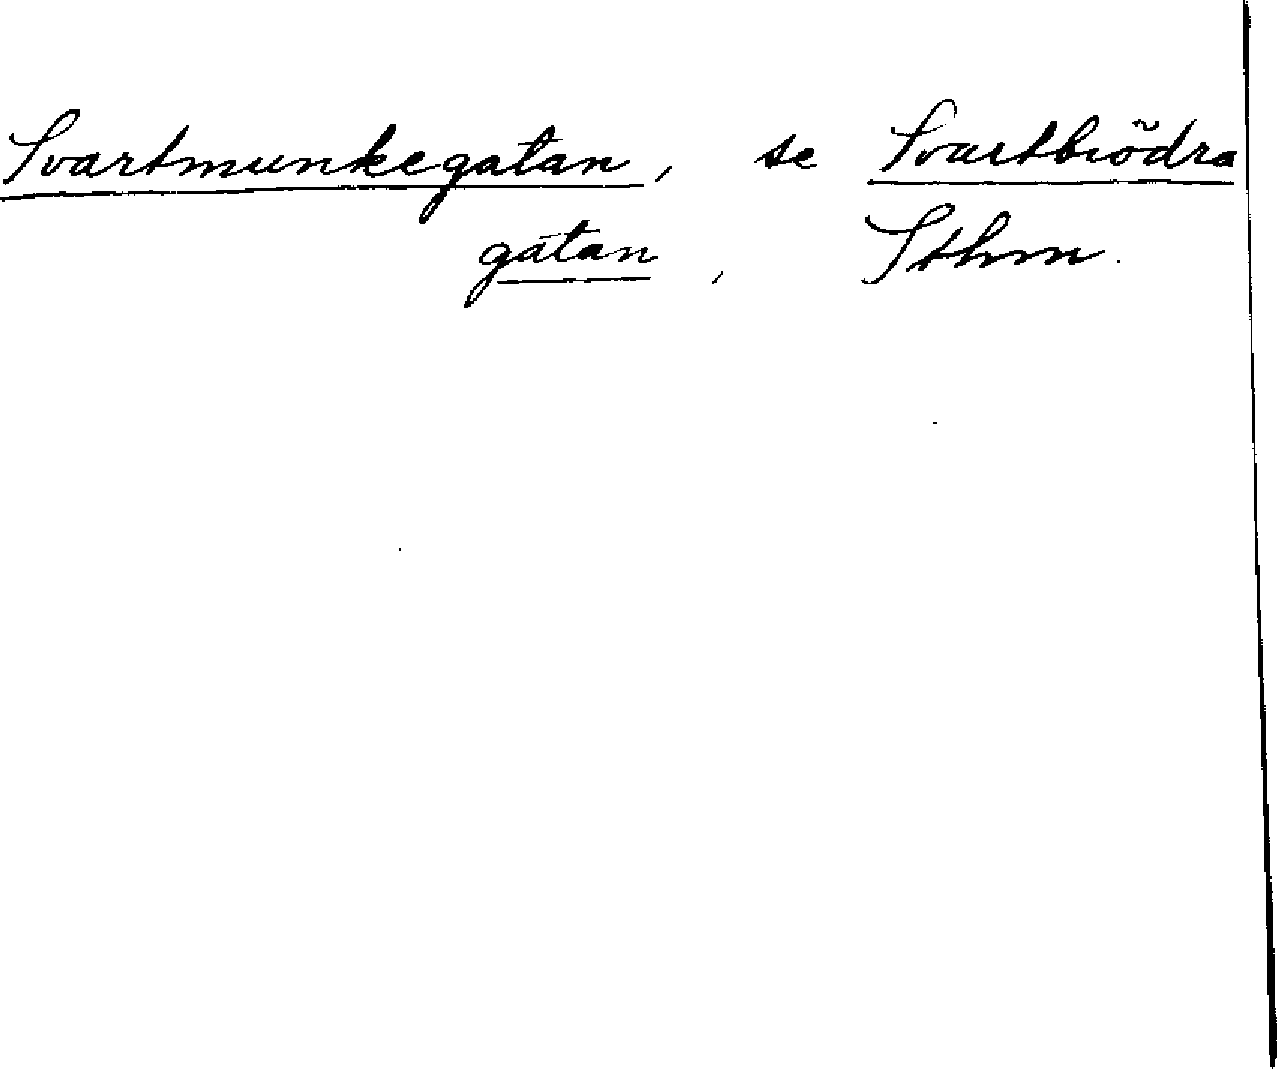 Svartmunkegatan, se Svartbrödra
gatan, Sthm.